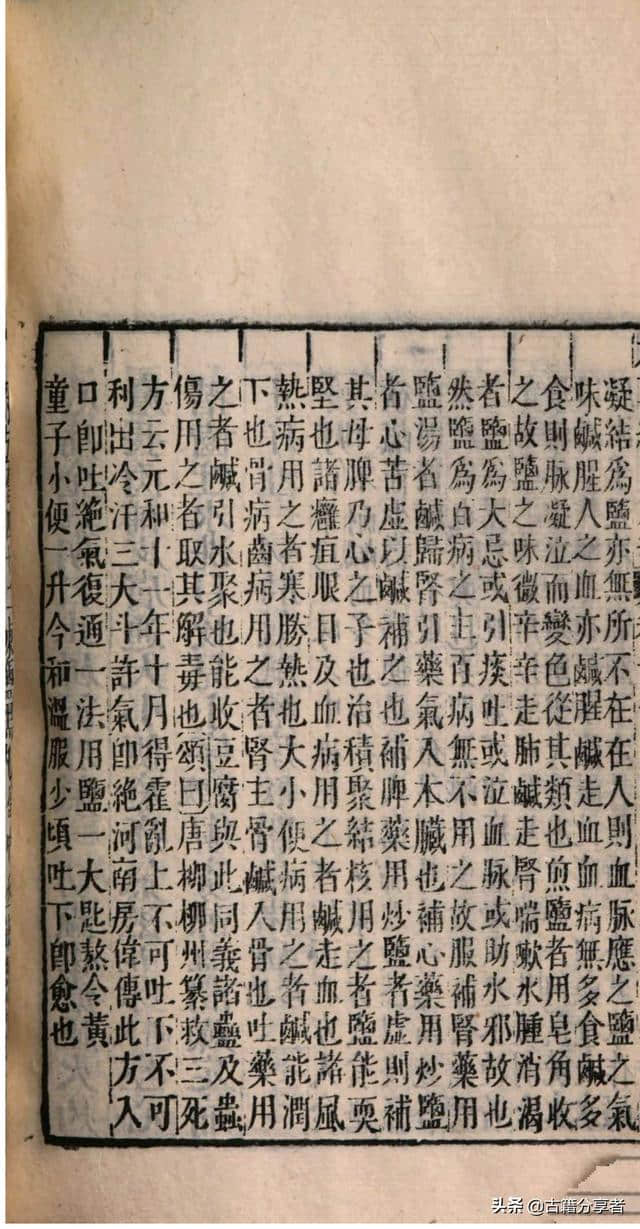 凝結為鹽亦無所不在在人則血脈應之鹽之氣
味鹹腥人之血亦鹹腥鹹走血血病無多食鹹多
食則脈凝泣而變色從其類也煎鹽者用皂角收
之故鹽之味微辛辛走肺鹹走腎喘嗽水腫消渴
者鹽為大忌或引痰吐或泣血脈或助水邪故也
然鹽為百病之主百病無不用之故服補腎藥用
鹽湯者鹹歸腎引藥氣入本臟也補心藥用炒鹽
者心苦虛以鹹補之也補脾藥用炒鹽者虛則補
其母脾乃心之子也治積聚結核用之者鹽能耎
堅也諸癰疽眼目及血病用之者鹹走血也諸風
熱病用之者寒勝熱也大小便病用之者鹹能潤
下也骨病齒病用之者腎主骨鹹入骨也吐藥用
之者鹹引水聚也能收豆腐與此同義諸蠱及蟲
傷用之者取其解毒也頌曰唐柳柳州纂救三死
方云元和十一年十月得霍亂上不可吐下不可
利出冷汗三大斗許氣即絕河南房偉傳此方入
口即吐絕氣復通一法用鹽一大匙熬令黃
童子小便一升今和溫服少頃吐下即愈也
头条 @古籍分享者